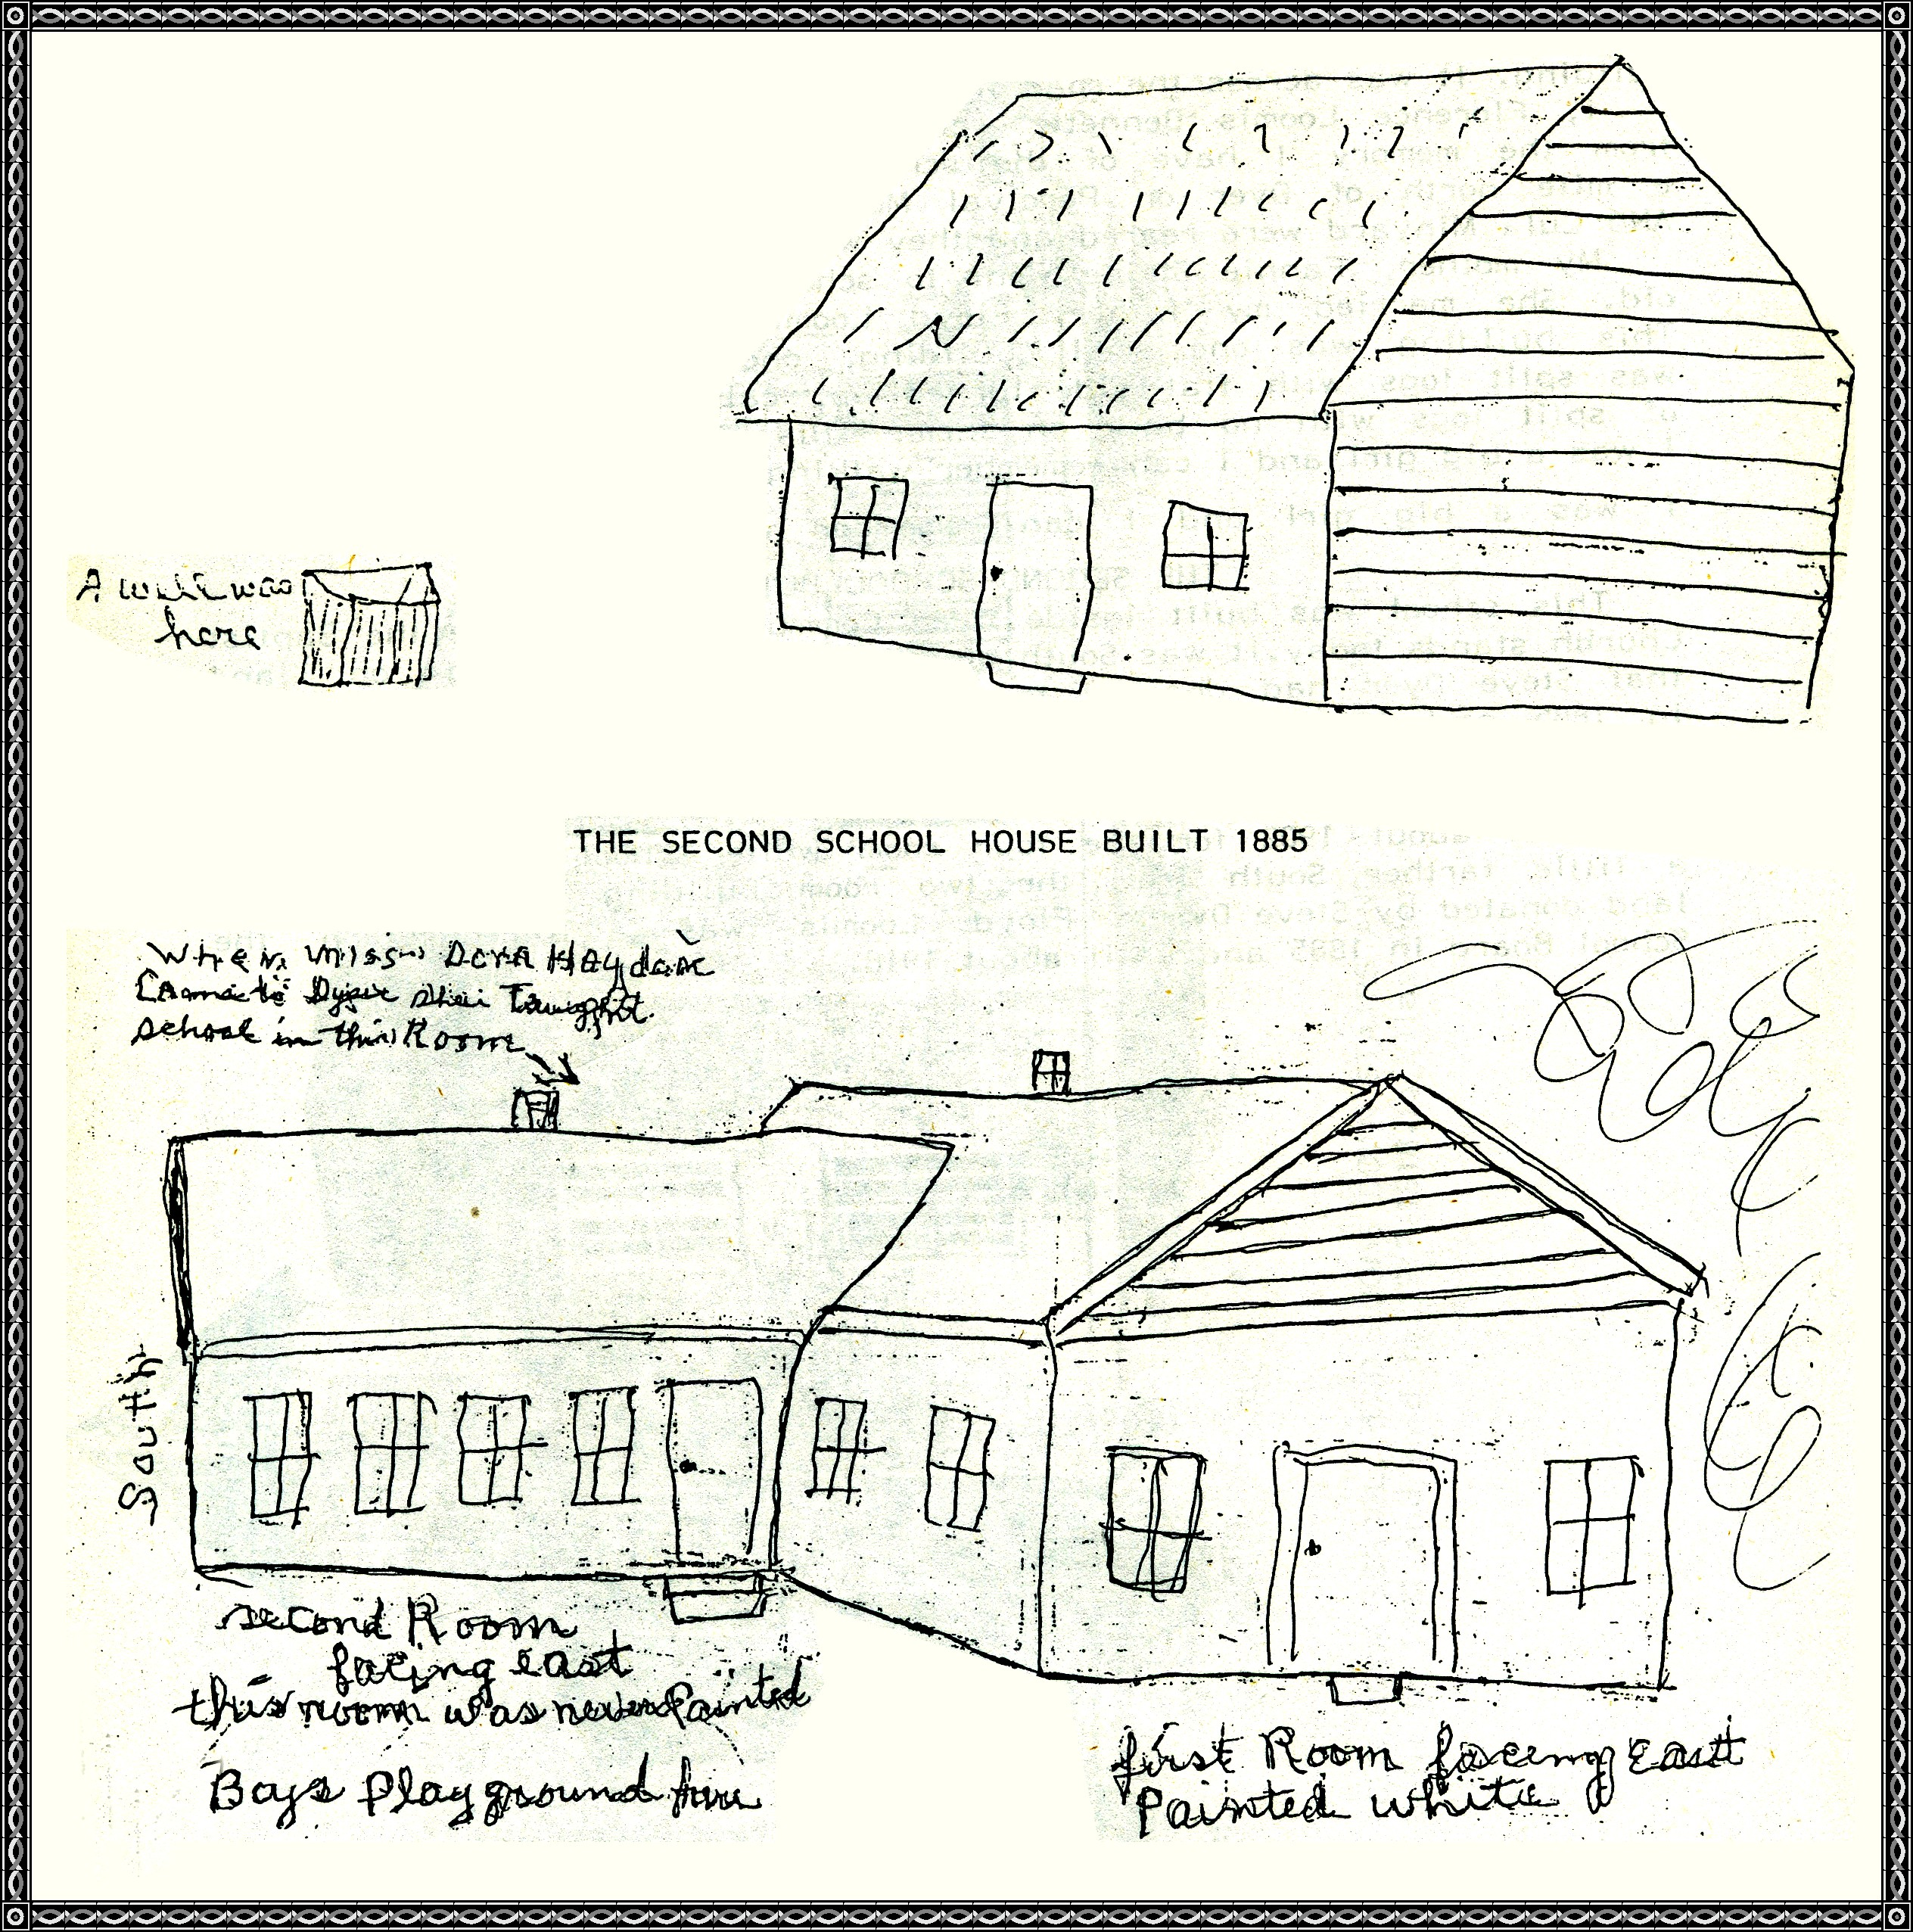 A well was
here
THE SECOND SCHOOL HOUSE BUILT 1885
When Miss Dora Haydon
Came to Dyer she Taught
school in this Room
South
second Room
facing east
this room was never Painted
Boys Playground here
first Room facing east
Painted white